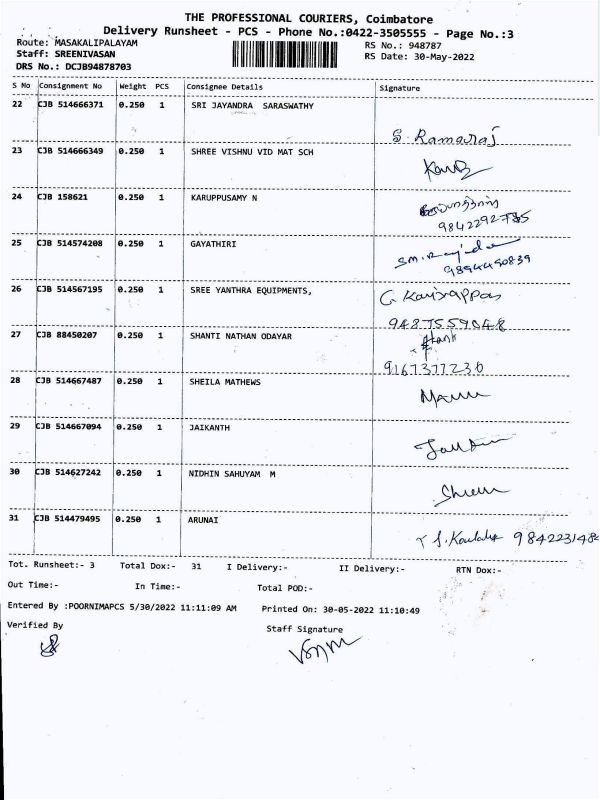 THE PROFESSIONAL COURIERS, Coimbatore
Delivery Runsheet - PCS - Phone No.:0422-3505555 - Page No.:3
Route: MASAKALIPALAYAM
RS No.: 948787
Staff: SREENIVASAN
RS Date: 30-May-2022
DRS No.: DCJB94878703
S No Consignment No Weight PCS Consignee Details Signature
22 CJB 514666371 0.250 1 SRI JAYANDRA SARASWATHY
S. Ramaraj
23 CJB 514666349 0.250 1 SHREE VISHNU VID MAT SCH
24 CJB 158621 0.250 1 KARUPPUSAMY N
9842292785
25 CJB 514574208 0.250 1 GAYATHIRI
9894490839
26 CJB 514567195 0.250 1 SREE YANTHRA EQUIPMENTS,
9487559048
27 CJB 88450207 0.250 1 SHANTI NATHAN ODAYAR
9167377230
28 CJB 514667487 0.250 1 SHEILA MATHEWS
29 CJB 514667094 0.250 1 JAIKANTH
30 CJB 514627242 0.250 1 NIDHIN SAHUYAM M
31 CJB 514479495 0.250 1 ARUNAI
Tot. Runsheet:- 3 Total Dox:- 31 I Delivery:- II Delivery:- RTN Dox:-
Out Time:- In Time:- Total POD:-
Entered By :POORNIMAPCS 5/30/2022 11:11:09 AM Printed On: 30-05-2022 11:10:49
Verified By Staff Signature